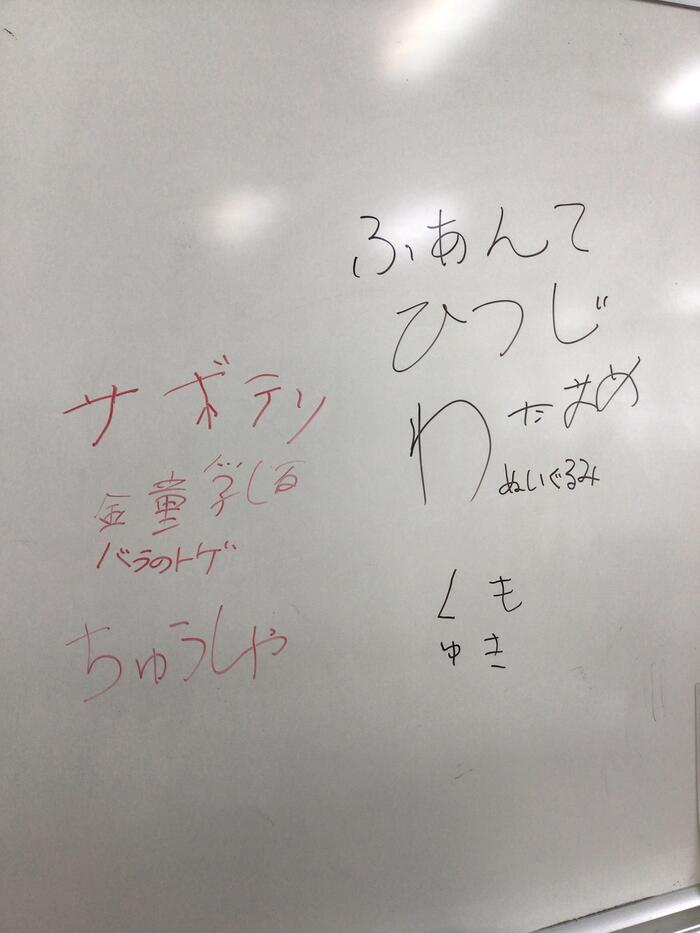 ふあんて
ひつじ
わたまめ
ぬいぐるみ
くも
ゆき
サボテン
バラのトゲ
ちゅうしゃ